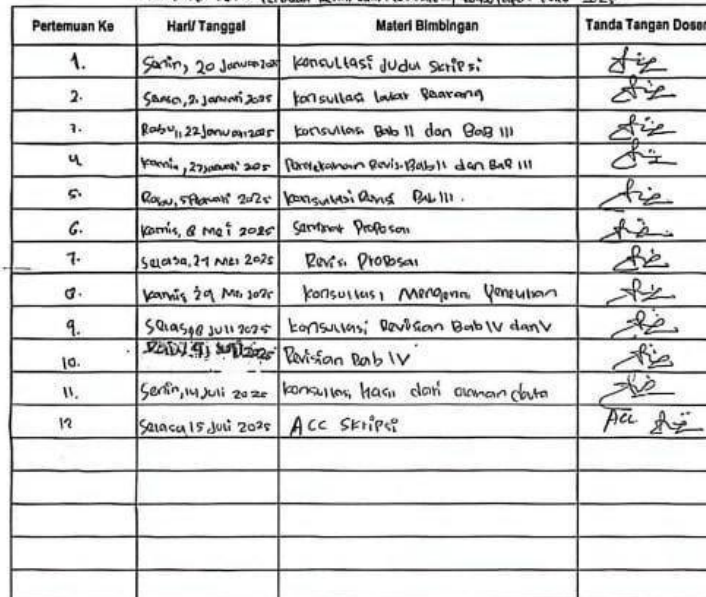 Pertemuan Ke Hari/ Tanggal Materi Bimbingan Tanda Tangan Dosen
1. Senin, 20 Januari 2025 Konsultasi Judul Skripsi
2. 2025 Konsultasi Latar
3. Rabu, 22 Januari 2025 Konsultasi Bab II dan Bab III
4. Kamis, 2025 Revisi Bab II dan Bab III
5. Rabu, 5 Februari 2025 Konsultasi Revisi Bab III.
6. Kamis, 8 Mei 2025 Seminar Proposal
7. Selasa, 27 Mei 2025 Revisi Proposal
8. Kamis 29 Mei 2025 Konsultasi Mengenai Penelitian
9. Selasa 8 Juli 2025 Konsultasi Revisian Bab IV dan V
10. 2025 Revisian Bab IV
11. Senin, 14 Juli 2025 Konsultasi Hasil dari data
12 Selasa 15 Juli 2025 ACC Skripsi ACC